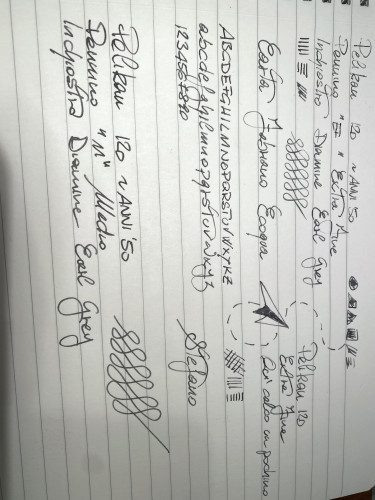 Pelikan 120 ~ ANNI '50
Pennino "EF" Extra Fine
Inchiostro Diamine Earl Grey
Carta Fabriano Ecoqua
Pelikan 120
Extra Fine
Qui calco un pochino
ABCDEFGHILMNOPQRSTUVWXYKZ
abcdefghilmnopqrstuvwxyz
1234567890
Stefano
Pelikan 120 ~ ANNI '50
Pennino "M" Medio
Inchiostro Diamine Earl Grey